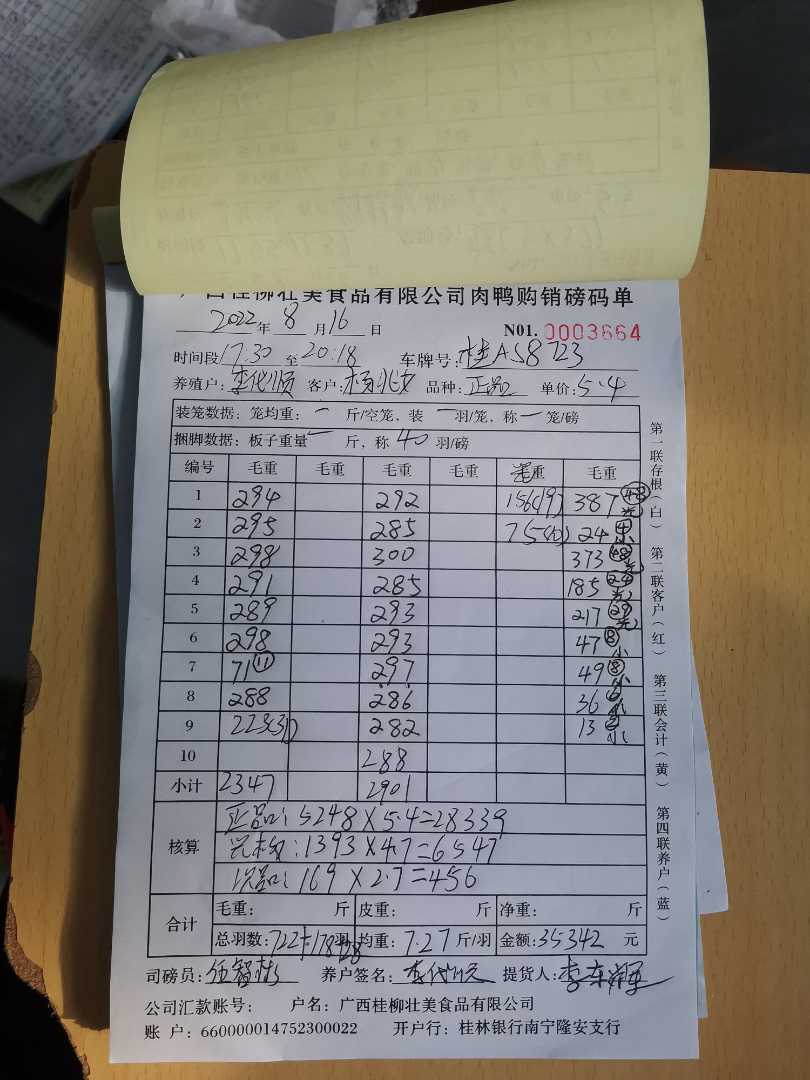 广西桂柳壮美食品有限公司肉鸭购销磅码单
2022年 8 月 16 日 N01. 0003664
时间段 17:30 至 20:18 车牌号: 桂AS8723
养殖户: 李代顺 客户: 品种: 正品 单价: 5.4
装笼数据: 笼均重: 一 斤/空笼, 装 一 羽/笼, 称 一 笼/磅
捆脚数据: 板子重量 一 斤, 称 40 羽/磅
编号 毛重 毛重 毛重 毛重 毛重 毛重
1 294 292 156(19) 387 48
2 295 285 75(10) 24 4
3 298 300 373 48
4 291 285 185 24
5 289 293 217 29
6 298 293 47 8 小
7 71 11 297 49 8
8 288 286 36 6
9 223(31) 282 13
10 288
小计 2347 2901
核算
正品: 5248×5.4=28339
1393×4.7=6547
次品: 169×2.7=456
合计
毛重: 斤 皮重: 斤 净重: 斤
总羽数: 722+178+28 羽 均重: 7.27 斤/羽 金额: 35342 元
司磅员: 养户签名: 提货人:
公司汇款账号: 户名: 广西桂柳壮美食品有限公司
账 户: 660000014752300022 开户行: 桂林银行南宁隆安支行
第一联存根(白) 第二联客户(红) 第三联会计(黄) 第四联养户(蓝)